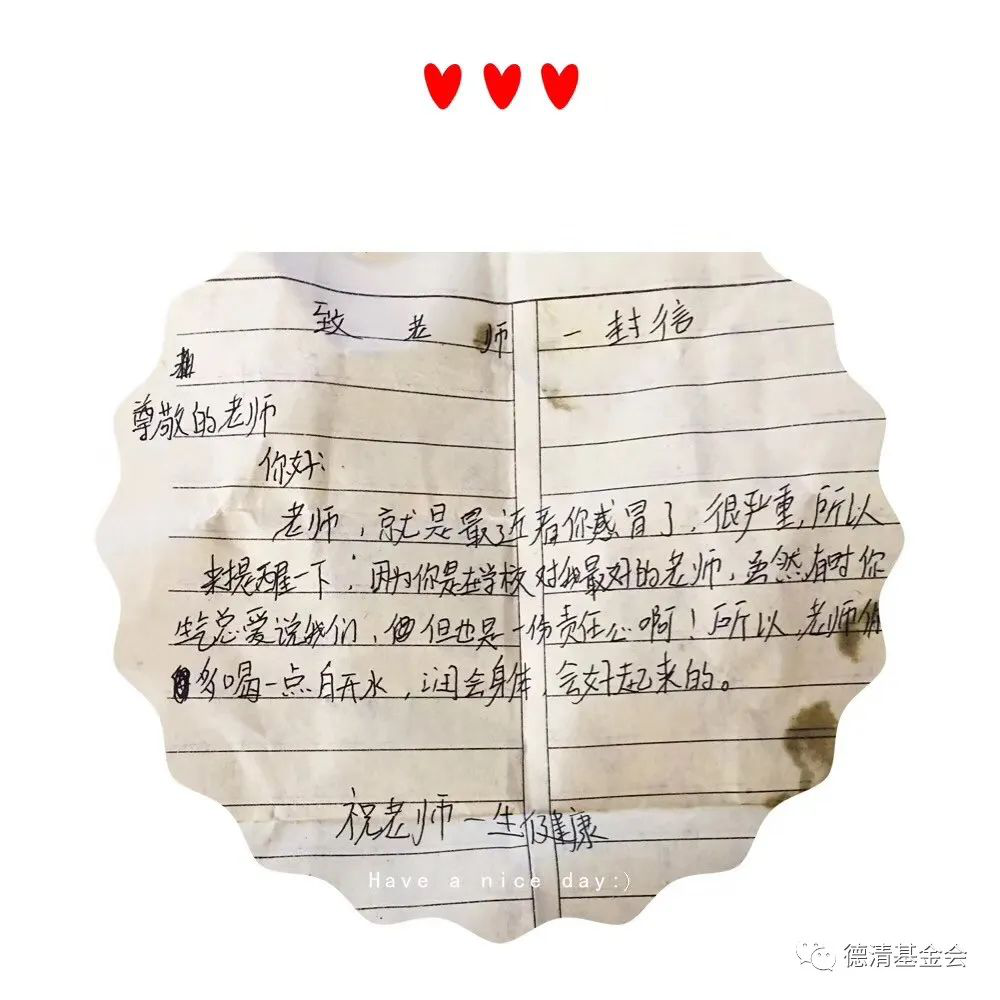 致老师一封信
尊敬的老师
你好:
老师，就是最近看你感冒了，很严重，所以
来提醒一下，因为你是在学校对我最好的老师，虽然有时你
生气总爱说我们，但也是一份责任心啊！所以，老师你
多喝一点白开水，润会身体，会好起来的。
祝老师一生健康
Have a nice day:)
德清基金会